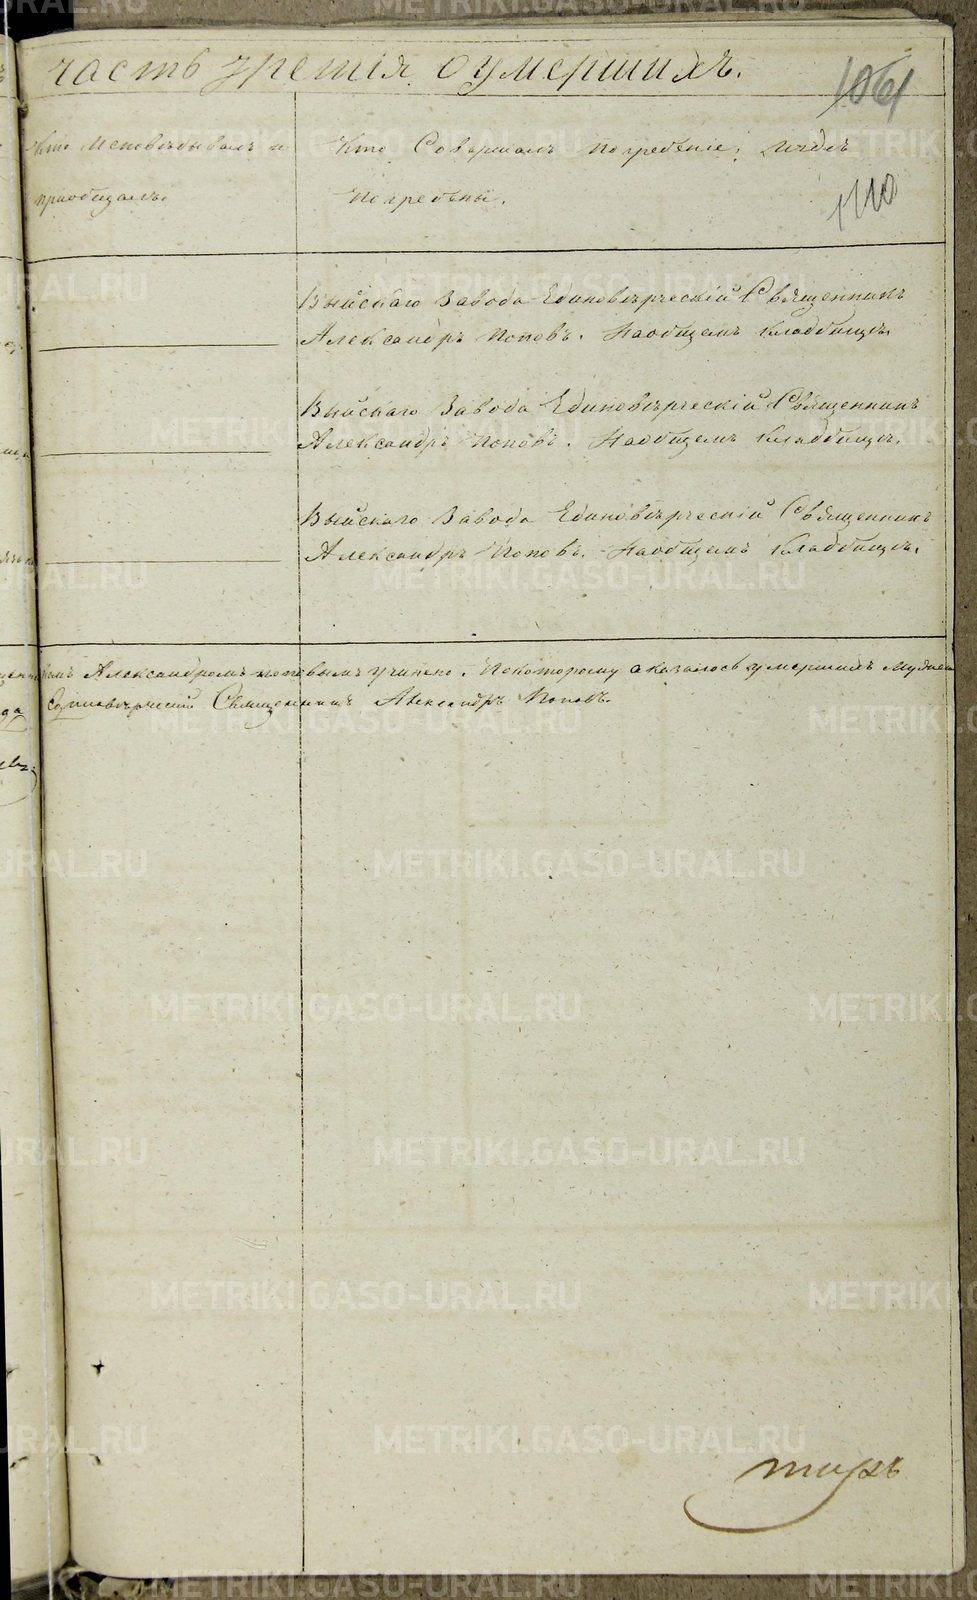 часть третія о умершихъ.
1061
1110
Кто исповѣдывалъ и
пріобщалъ.
Кто Совершалъ погребеніе, и гдѣ
погребены.
Выйскаго Завода Единовѣрческій Священникъ
Александръ Поповъ. На общемъ кладбищѣ.
Выйскаго Завода Единовѣрческій Священникъ
Александръ Поповъ. На общемъ кладбищѣ.
Выйскаго Завода Единовѣрческій Священникъ
Александръ Поповъ. На общемъ кладбищѣ.
Александромъ Поповымъ учинено. По которому оказалось умершихъ Мужеска
Единовѣрческій Священникъ Александръ Поповъ.
METRIKI.GASO-URAL.RU